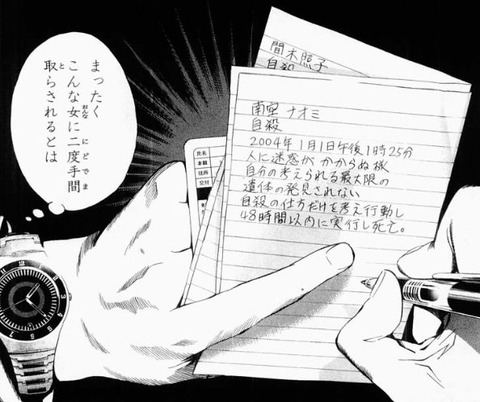 まったく
こんな女に二度手間
取らされるとは
間木照子
自殺
南空 ナオミ
自殺
2004年 1月1日午後1時25分
人に迷惑が かからぬ様
自分の考えられる最大限の
遺体の発見されない
自殺の仕方だけを考え行動し
48時間以内に実行し死亡。
氏名
本籍
住所
交付